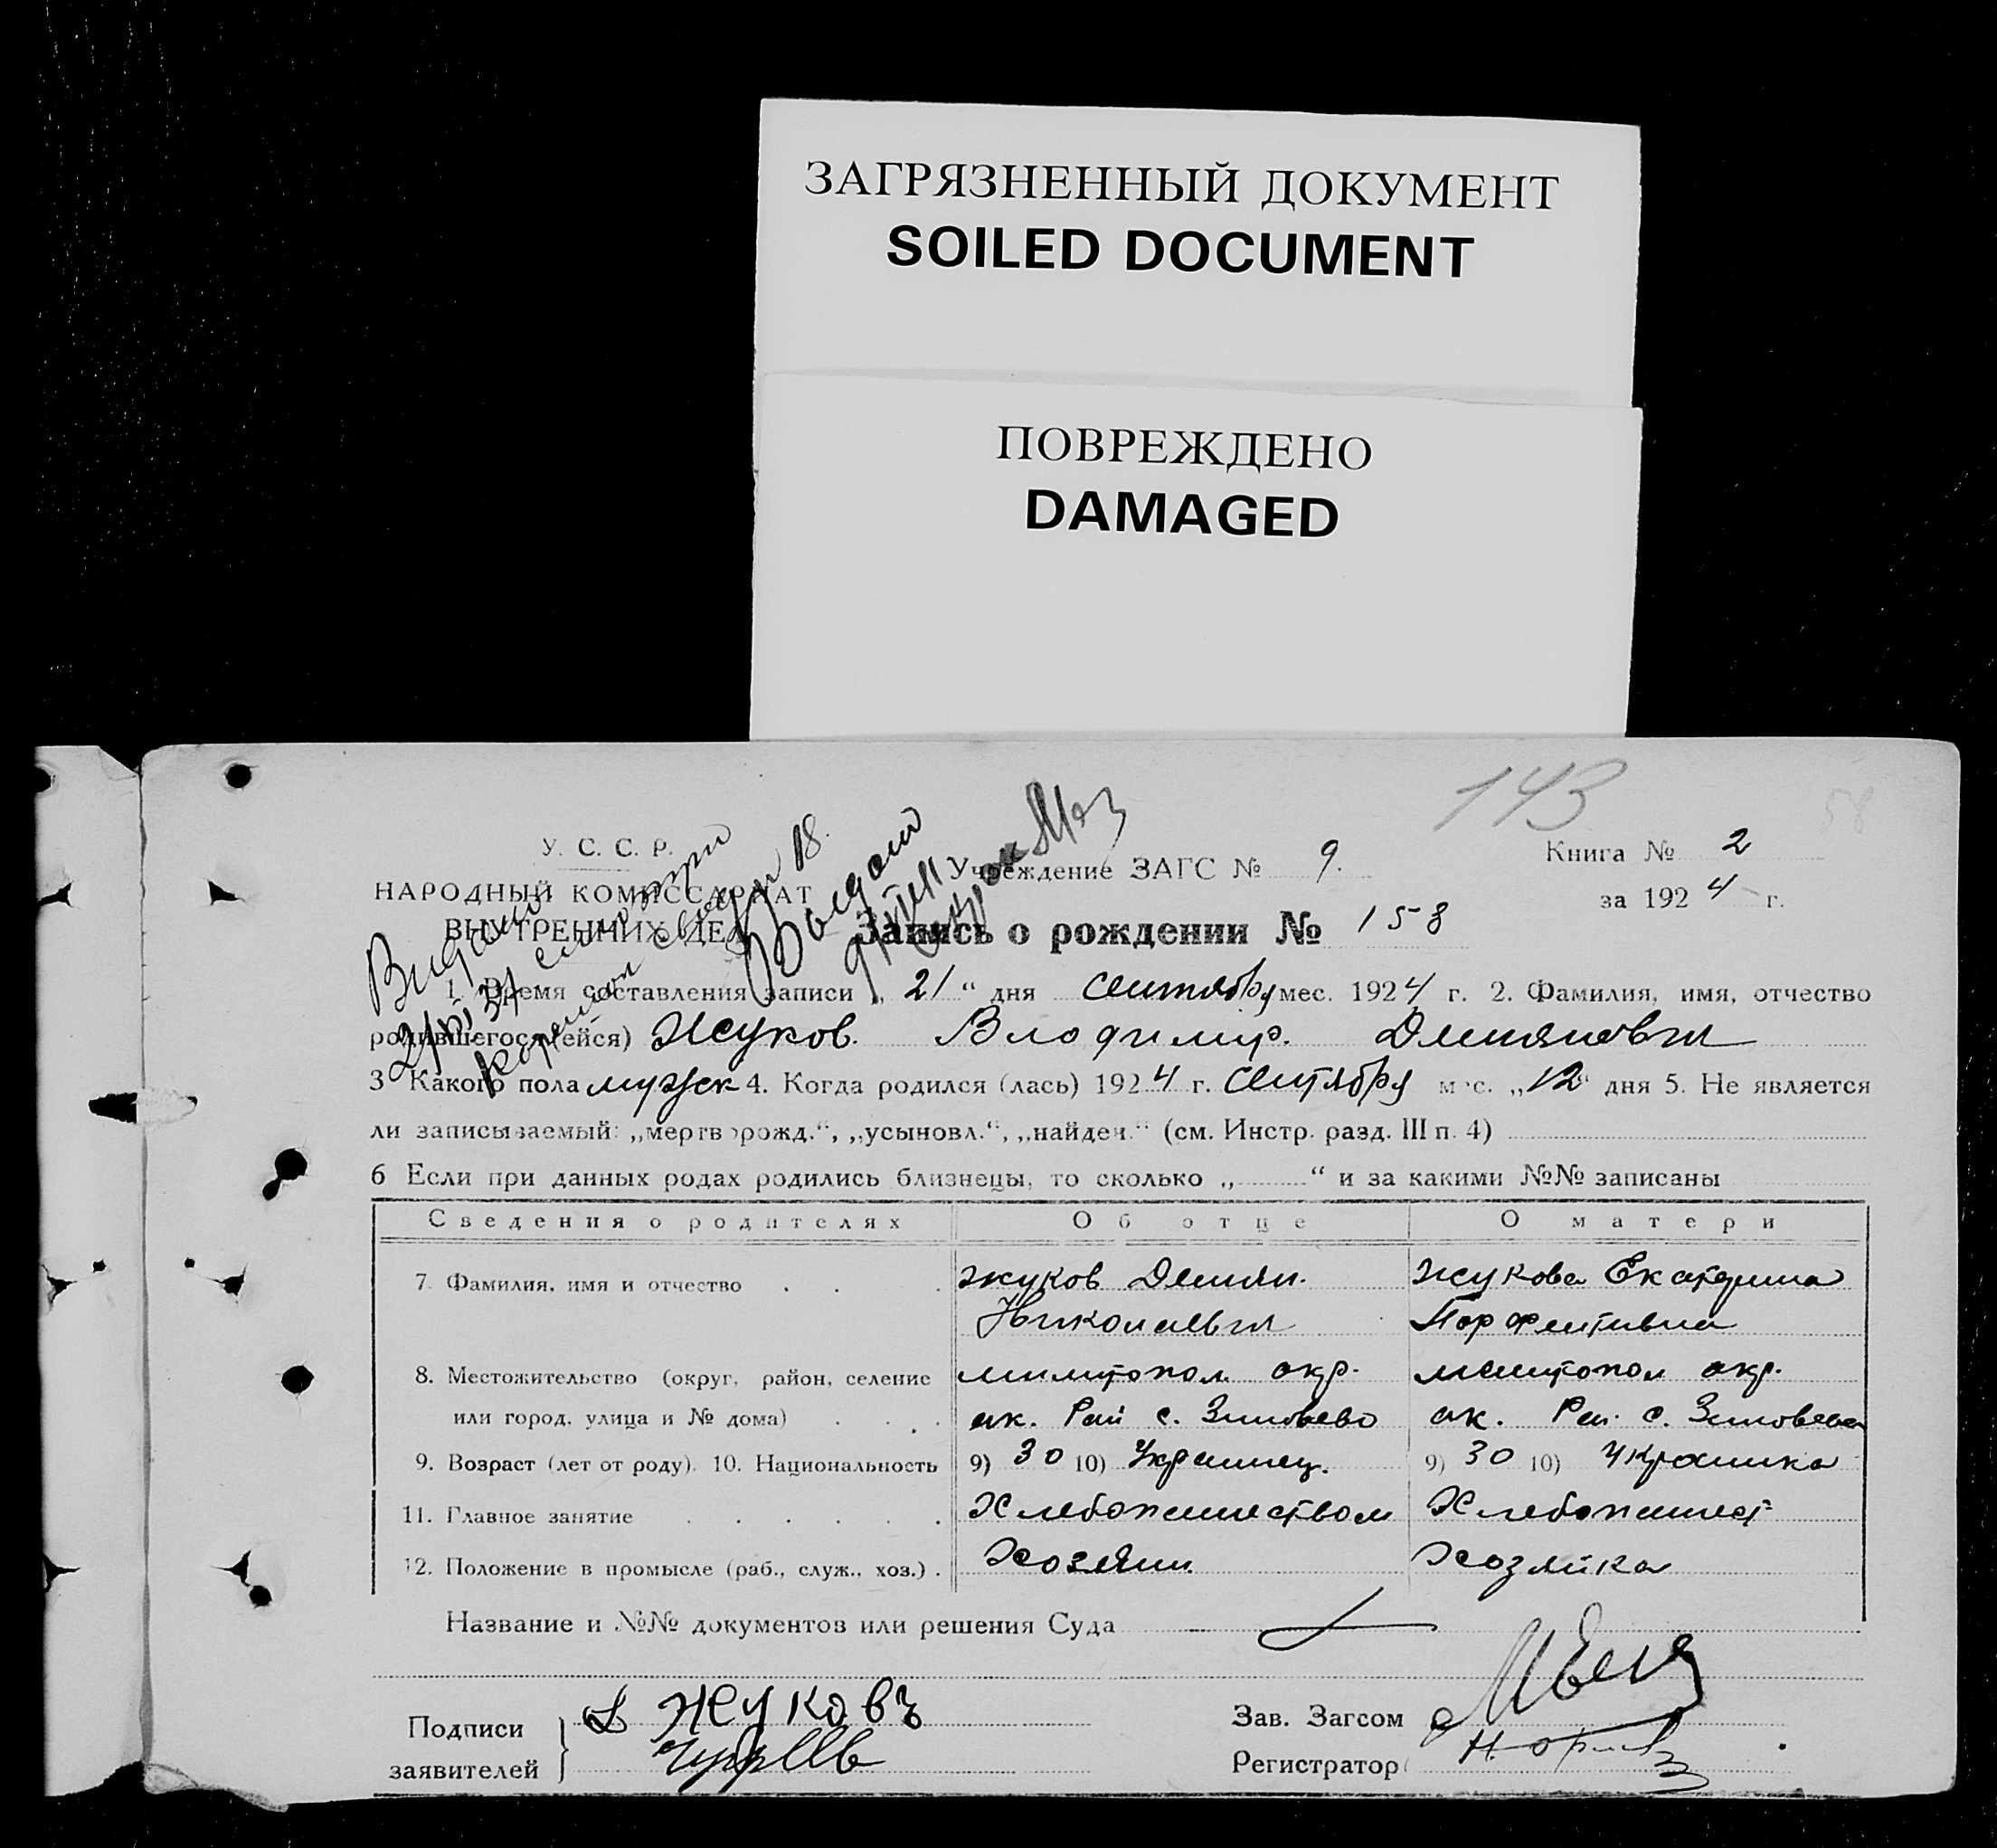 ЗАГРЯЗНЕННЫЙ ДОКУМЕНТ
SOILED DOCUMENT
ПОВРЕЖДЕНО
DAMAGED
143
58
У. С. С. Р.
НАРОДНЫЙ КОМИССАРИАТ
ВНУТРЕННИХ ДЕЛ
Учреждение ЗАГС № 9.
Книга № 2
за 1924 г.
Запись о рождении № 158
1. Время составления записи „21“ дня сентября мес. 1924 г. 2. Фамилия, имя, отчество
родившегося(ейся) Жуков. Владимир.
3 Какого пола мужск 4. Когда родился (лась) 1924 г. Сентября мес. „12“ дня 5. Не является
ли записываемый: „мертворожд.“, „усыновл.“, „найден.“ (см. Инстр. разд. III п. 4)
6 Если при данных родах родились близнецы, то сколько „ “ и за какими №№ записаны
Сведения о родителях Об отце О матери
7. Фамилия, имя и отчество жуков Демян. жукова Екатерина
Николаевич
8. Местожительство (округ, район, селение окр. окр.
или город, улица и № дома) ак. Рай с. Зиновьево ак. Рай. с.
9. Возраст (лет от роду). 10. Национальность 9) 30 10) Украинец. 9) 30 10) Украинка
11. Главное занятие Хлебопашеством Хлебопашест
12. Положение в промысле (раб., служ., хоз.) Хозяин. Хозяйка
Название и №№ документов или решения Суда
Подписи Д Жуковъ
заявителей
Зав. Загсом
Регистратор